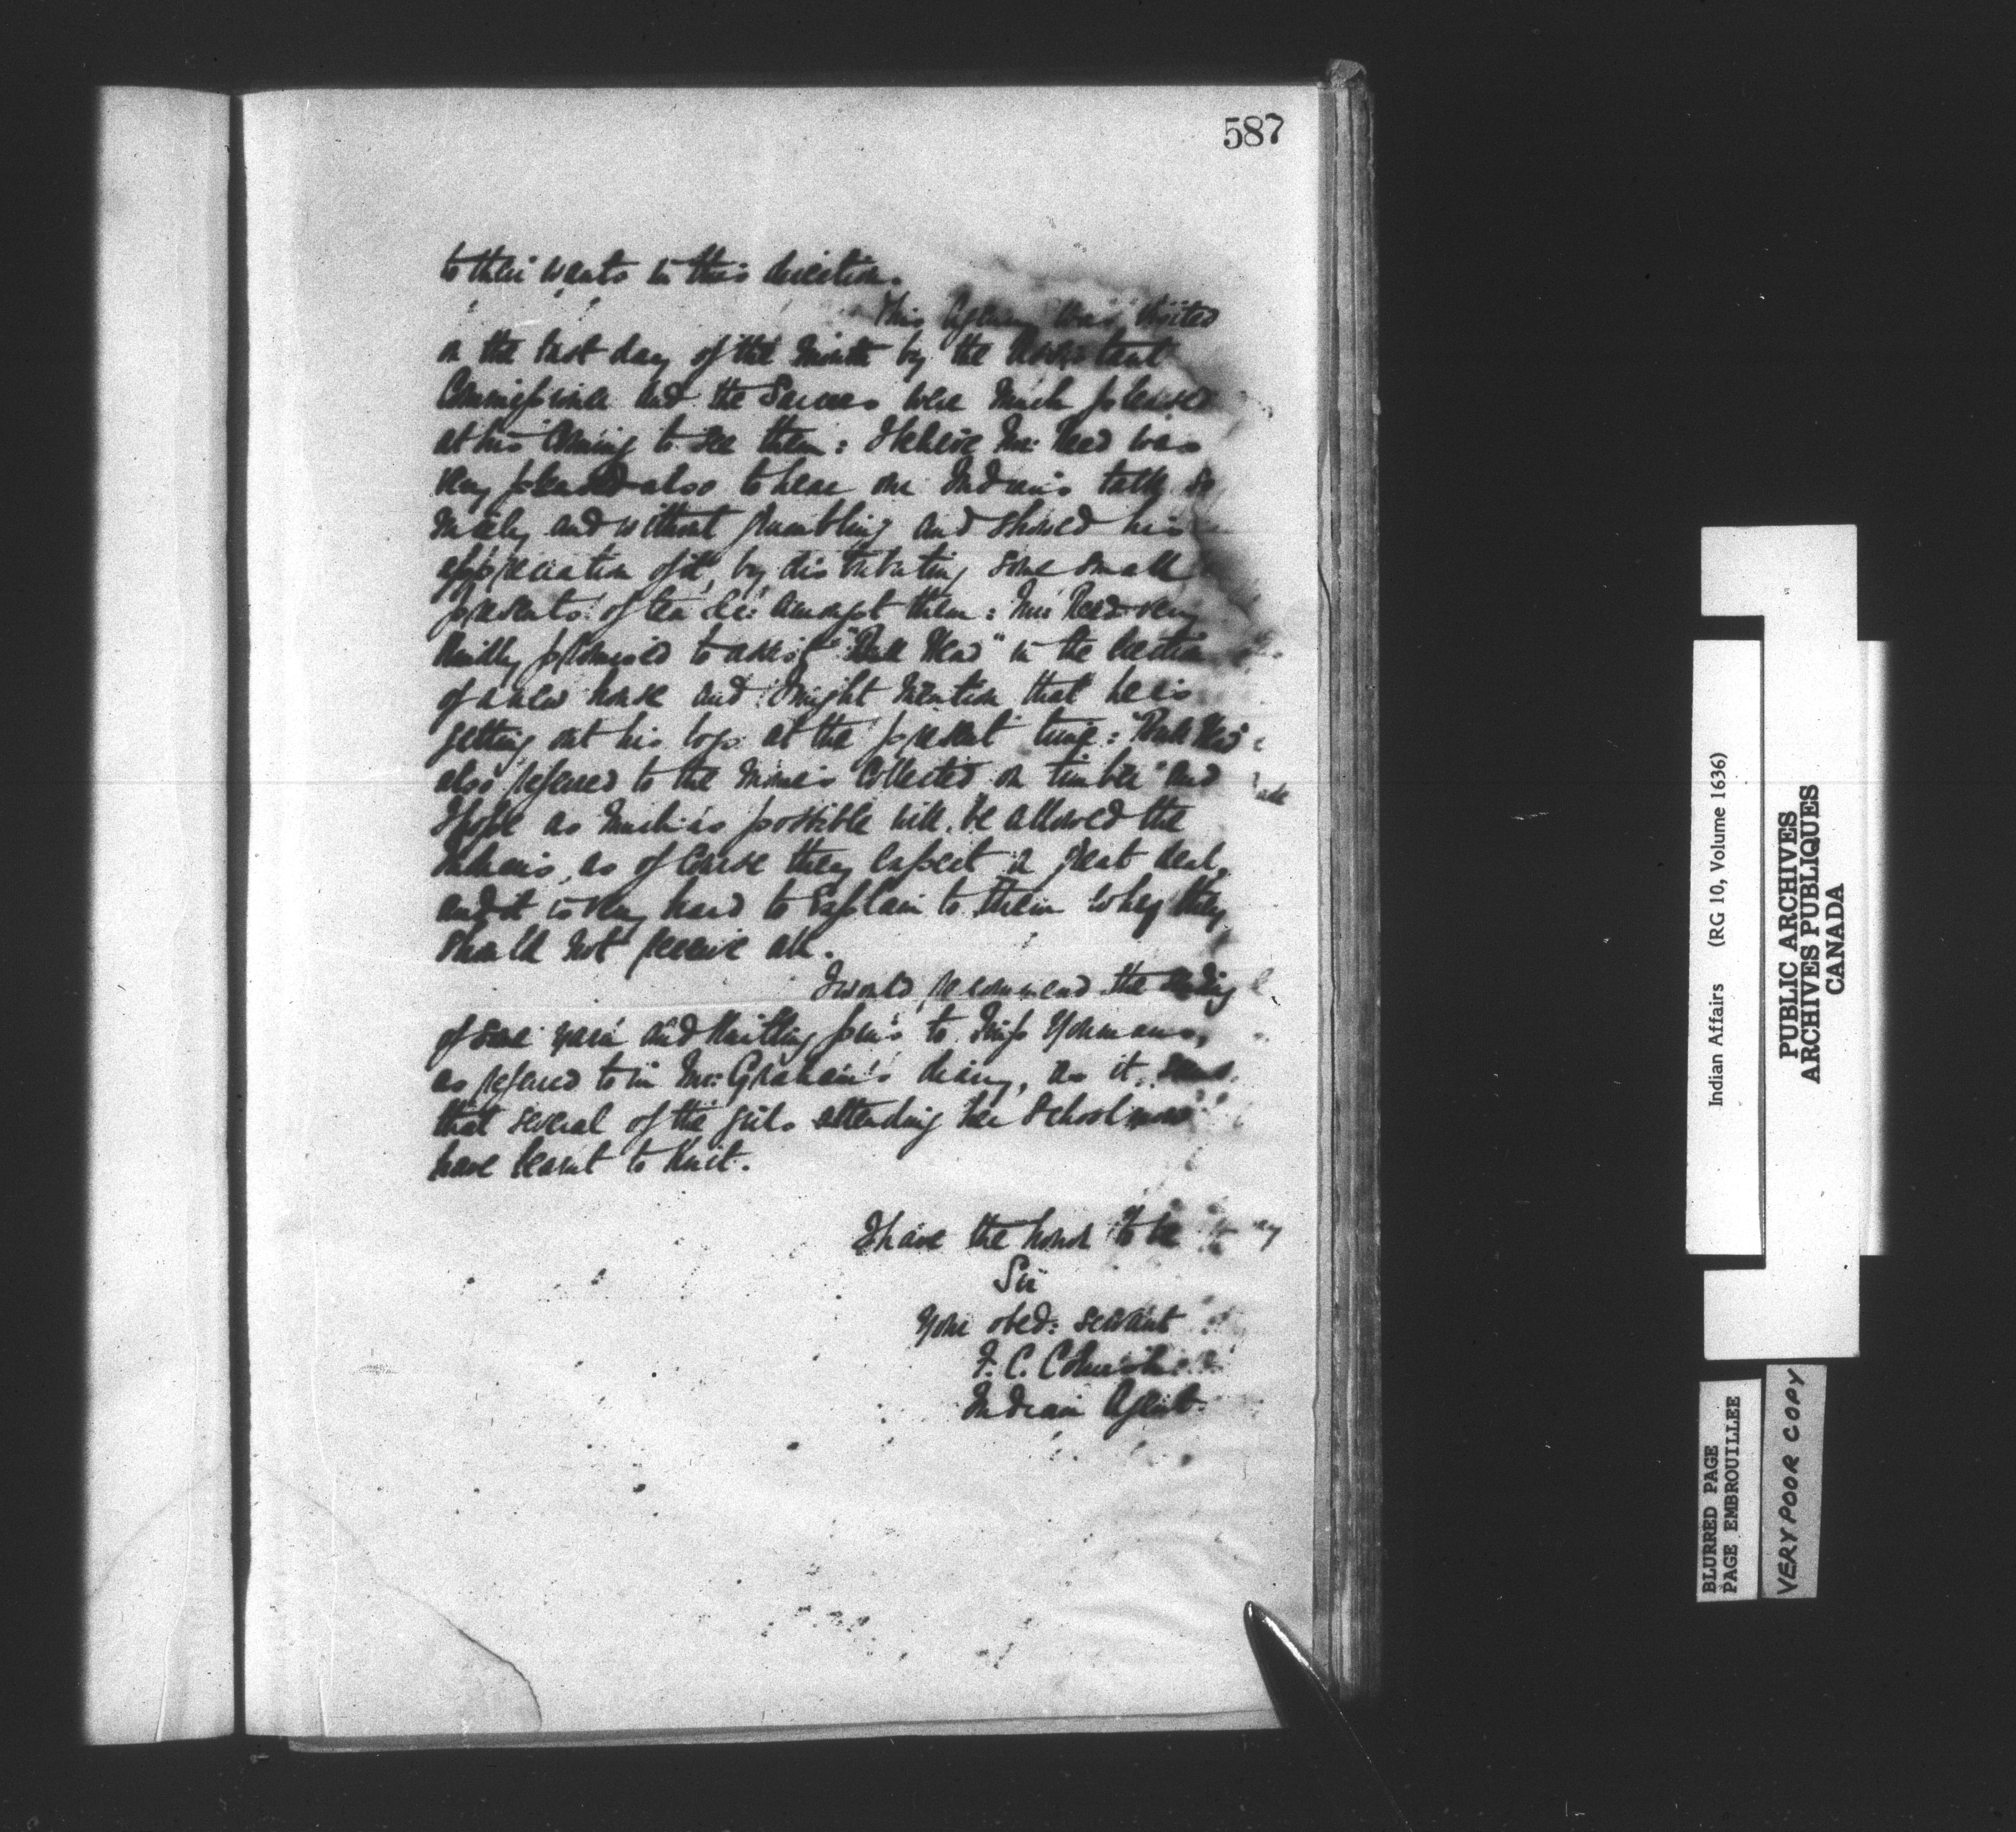 587
to their wants in this direction.
This Agency was visited
on the last day of the month by the Assistant
Commissioner and the Sarcees were much pleased
at his coming to see them: I believe Mr. Reed was
very pleased also to hear our Indians talk so
nicely and without grumbling and showed his
appreciation of it, by distributing some small
presents of tea &c: amongst them: Mr. Reed very
kindly promised to assist "Bull Head" in the erection
of a new house and I might mention that he is
getting out his logs at the present time: "Bull Head"
also referred to the monies collected on timber and
I hope as much as possible will be allowed the
Indians, as of course they expect a great deal,
and it is very hard to explain to them why they
should not receive all.
I would recommend the sending
of some yarn and knitting pins to Miss Youmans,
as referred to in Mr. Graham's diary, as it seems
that several of the girls attending her school now
have learnt to knit.
I have the honor to be
Sir
Your obed: servant
F. C. Cornish
Indian Agent.
Indian Affairs (RG 10, Volume 1636)
PUBLIC ARCHIVES
ARCHIVES PUBLIQUES
CANADA
BLURRED PAGE
PAGE EMBROUILLEE
VERY POOR COPY